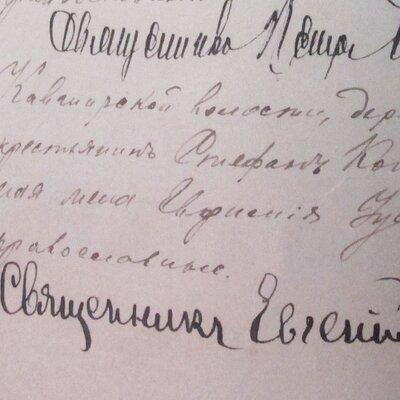 Священникъ Петръ
Каванирской волости, дер
крестьянинъ Стефанъ Ко
ная жена Евфимія
православные.
Священникъ Евгеній